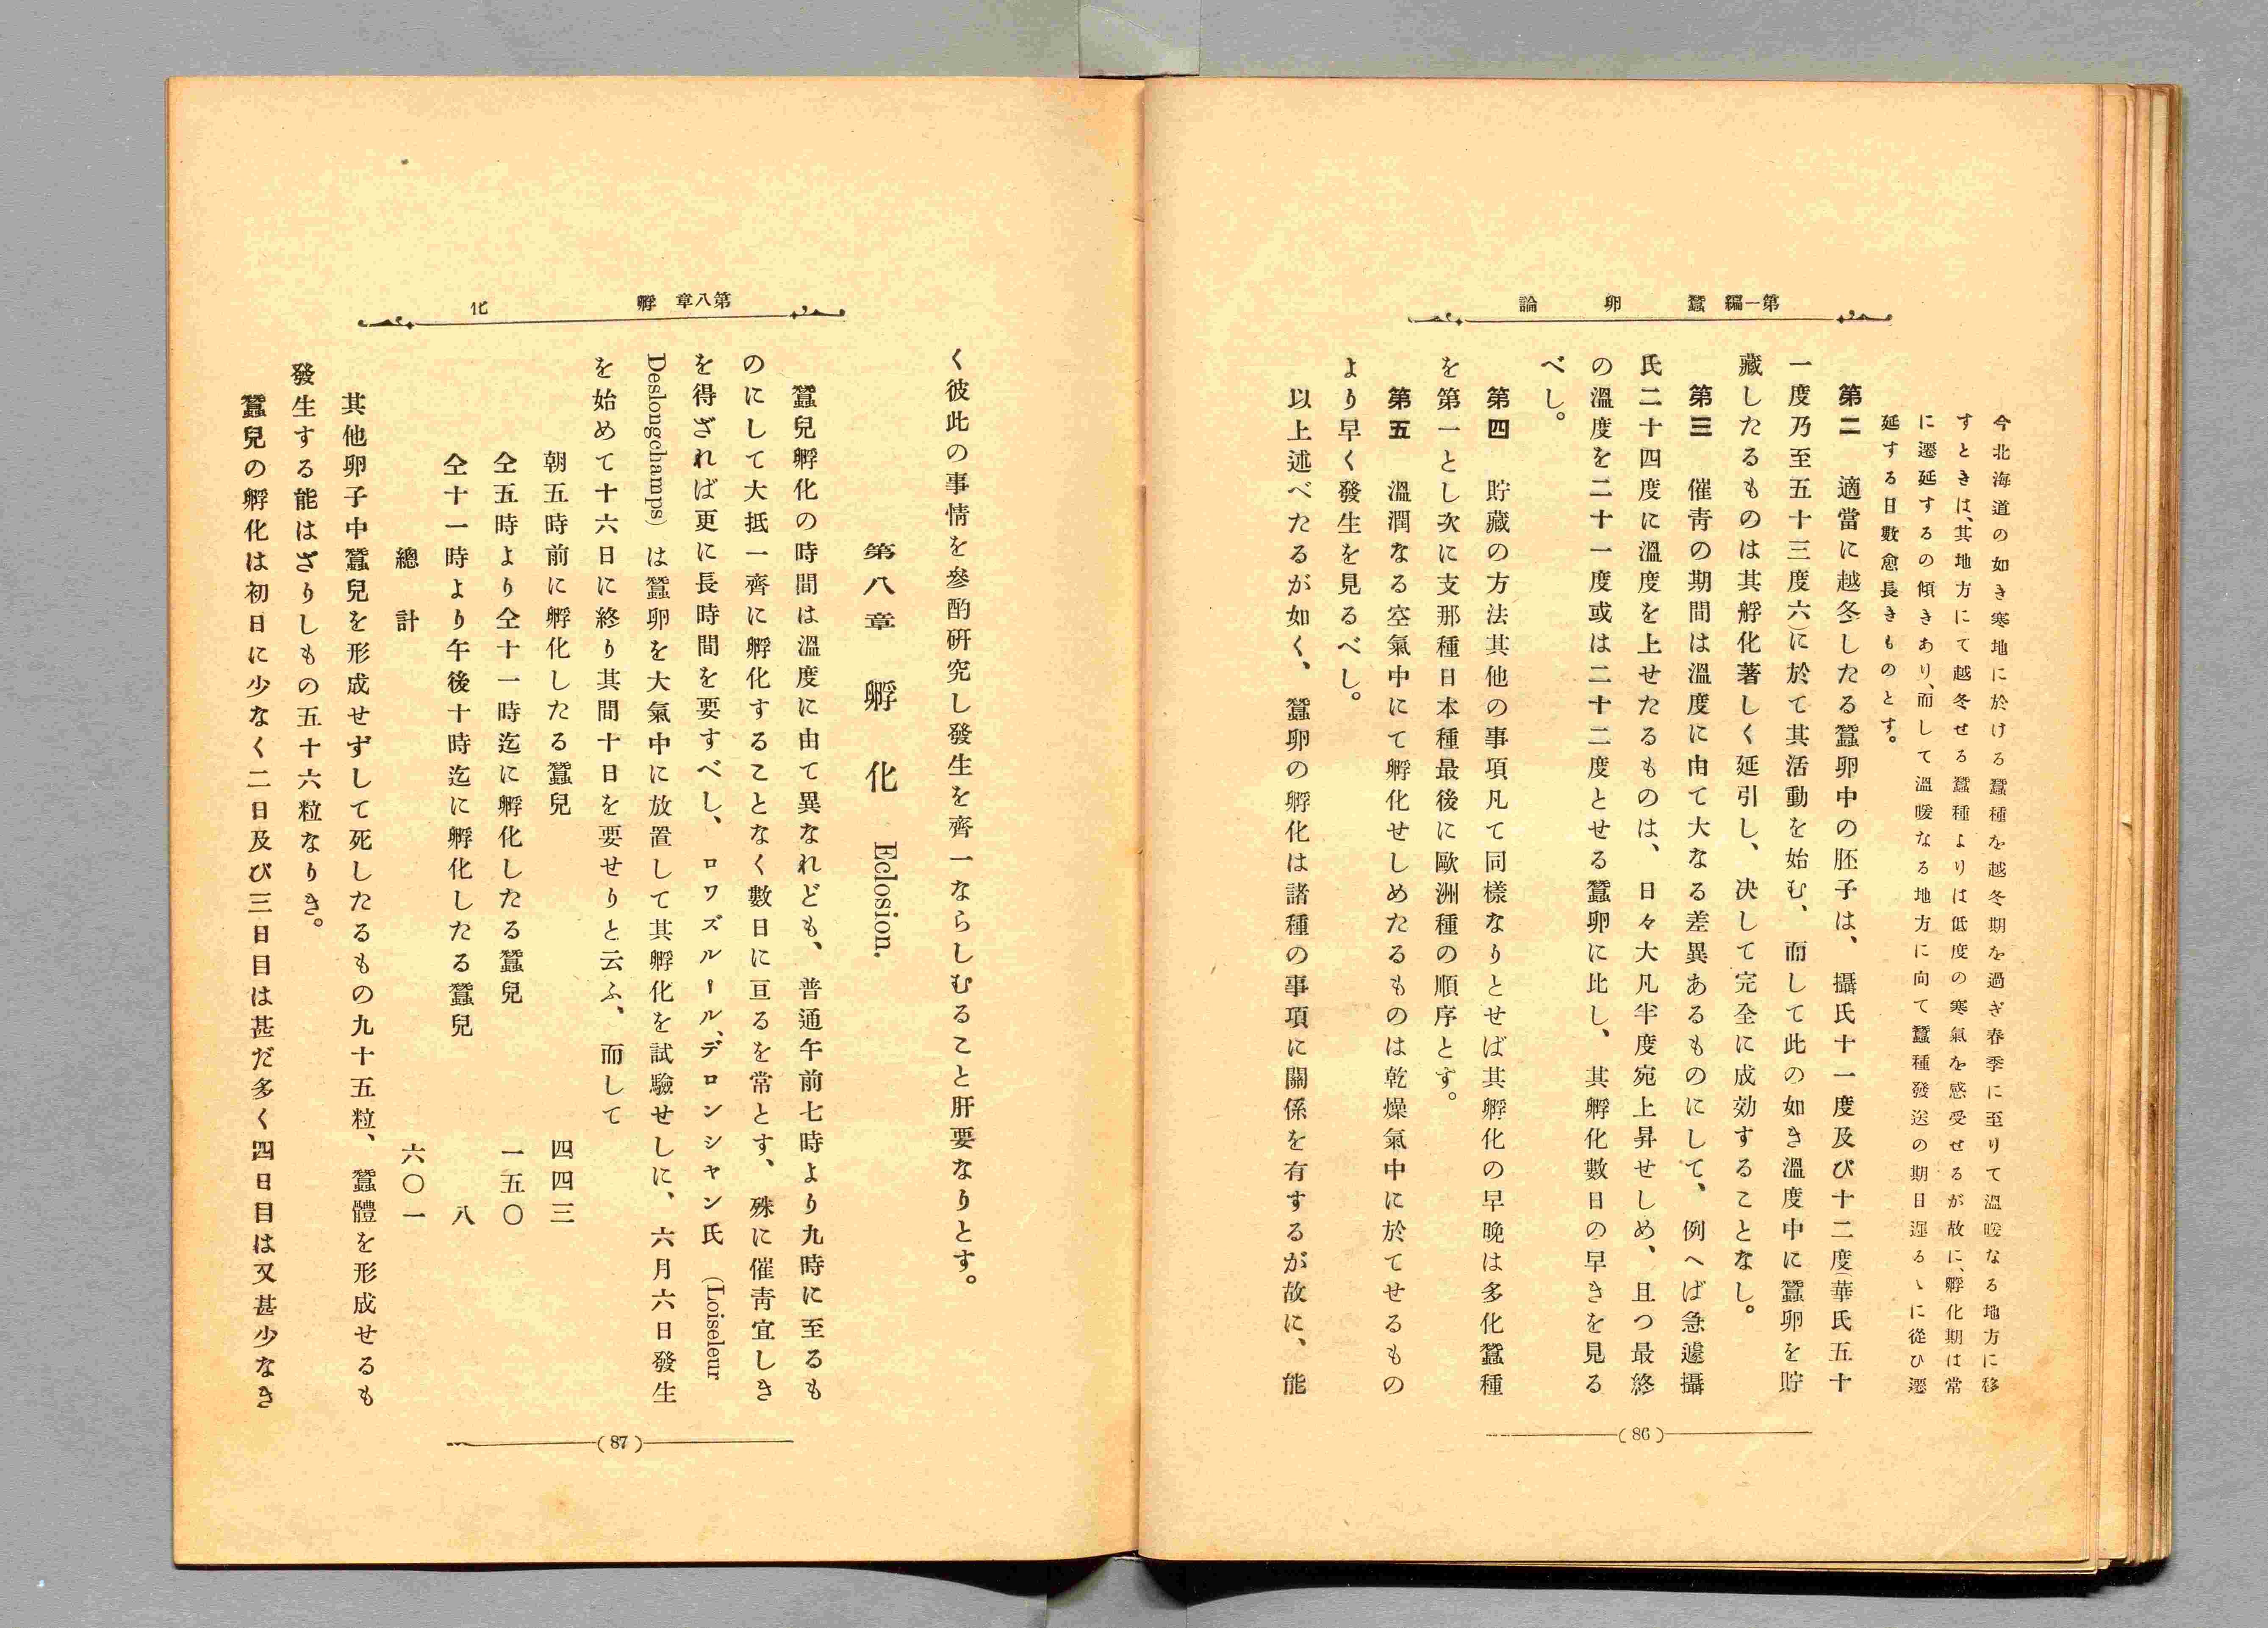 第一編　蠶卵論
今北海道の如き寒地に於ける蠶種を越冬期を過ぎ春季に至りて溫暖なる地方に移
すときは、其地方にて越冬せる蠶種よりは低度の寒氣を感受せるが故に、孵化期は常
に遷延するの傾きあり、而して溫暖なる地方に向て蠶種發送の期日遲るゝに從ひ遷
延する日數愈長きものとす。
第二　適當に越冬したる蠶卵中の胚子は、攝氏十一度及び十二度(華氏五十
一度乃至五十三度六)に於て其活動を始む、而して此の如き溫度中に蠶卵を貯
藏したるものは其孵化著しく延引し、決して完全に成効することなし。
第三　催靑の期間は溫度に由て大なる差異あるものにして、例へば急遽攝
氏二十四度に溫度を上せたるものは、日々大凡半度宛上昇せしめ、且つ最終
の溫度を二十一度或は二十二度とせる蠶卵に比し、其孵化數日の早きを見る
べし。
第四　貯藏の方法其他の事項凡て同樣なりとせば其孵化の早晚は多化蠶種
を第一とし次に支那種日本種最後に歐洲種の順序とす。
第五　溫潤なる空氣中にて孵化せしめたるものは乾燥氣中に於てせるもの
より早く發生を見るべし。
以上述べたるが如く、蠶卵の孵化は諸種の事項に關係を有するが故に、能
(86)
第八章　孵化
く彼此の事情を參酌硏究し發生を齊一ならしむること肝要なりとす。
第八章　孵化　Eclosion.
蠶兒孵化の時間は溫度に由て異なれども、普通午前七時より九時に至るも
のにして大抵一齊に孵化することなく數日に亘るを常とす、殊に催靑宜しき
を得ざれば更に長時間を要すべし、ロワズルール、デロンシャン氏 (Loiseleur
Deslongchamps) は蠶卵を大氣中に放置して其孵化を試驗せしに、六月六日發生
を始めて十六日に終り其間十日を要せりと云ふ、而して
朝五時前に孵化したる蠶兒　四四三
仝五時より仝十一時迄に孵化したる蠶兒　一五〇
仝十一時より午後十時迄に孵化したる蠶兒　八
總計　六〇一
其他卵子中蠶兒を形成せずして死したるもの九十五粒、蠶體を形成せるも
發生する能はざりしもの五十六粒なりき。
蠶兒の孵化は初日に少なく二日及び三日目は甚だ多く四日目は又甚少なき
(87)